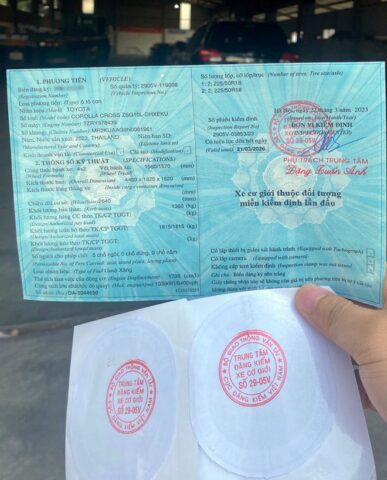 1. PHƯƠNG TIỆN (VEHICLE)
Biển đăng ký:
(Registration Number)
Số quản lý: 2905V-119008
(Vehicle Inspection No.)
Loại phương tiện: (Type) ô tô con
Nhãn hiệu: (Mark) TOYOTA
Số loại: (Model code) COROLLA CROSS ZSG10L-DHXEKU
Số máy: (Engine Number)
Số khung: (Chassis Number)
Năm, Nước sản xuất: 2022, THAILAND
(Manufactured Year and Country)
Niên hạn SD:
(Lifetime limit to)
Kinh doanh vận tải
Cải tạo (Modification)
2. THÔNG SỐ KỸ THUẬT (SPECIFICATIONS)
Công thức bánh xe: 4x2
(Wheel Formula)
Vết bánh xe:
(Wheel Tread)
Kích thước bao: (Overall Dimension) 4460 x 1825 x 1620 (mm)
Kích thước lòng thùng xe
(Inside cargo container dimension)
Chiều dài cơ sở: (Wheelbase) 2640 (mm)
Khối lượng bản thân: (Kerb mass) 1360 (kg)
Khối lượng hàng CC theo TK/CP TGGT:
Khối lượng toàn bộ theo TK/CP TGGT: 1815/1815 (kg)
Khối lượng kéo theo TK/CP TGGT:
Số người cho phép chở: 5 chỗ ngồi, 0 chỗ đứng, 0 chỗ nằm
Loại nhiên liệu: (Type of Fuel Used) Xăng
Thể tích làm việc của động cơ: (Engine Displacement) 1798 (cm³)
Số lượng lốp, cỡ lốp/trục (Number of tires, Tire size/axle)
1: 2; 225/50R18
2: 2; 225/50R18
Số phiếu kiểm định
(Inspection Report No)
2905V-03953/23
Có hiệu lực đến hết ngày
(Valid until) 21/03/2026
Hà Nội, ngày 22 tháng 3 năm 2023
(Issued on: Day/Month/Year)
ĐƠN VỊ KIỂM ĐỊNH
PHỤ TRÁCH TRUNG TÂM
Đặng Xuân Ánh
Xe cơ giới thuộc đối tượng
miễn kiểm định lần đầu
Có lắp thiết bị giám sát hành trình (Equipped with Tachograph)
Có lắp camera (Equipped with camera)
Không cấp tem kiểm định (Inspection stamp was not issued)
BỘ GIAO THÔNG VẬN TẢI
TRUNG TÂM
ĐĂNG KIỂM
XE CƠ GIỚI
SỐ 29-05V
CỤC ĐĂNG KIỂM VIỆT NAM
BỘ GIAO THÔNG VẬN TẢI
TRUNG TÂM
ĐĂNG KIỂM
XE CƠ GIỚI
SỐ 29-05V
CỤC ĐĂNG KIỂM VIỆT NAM